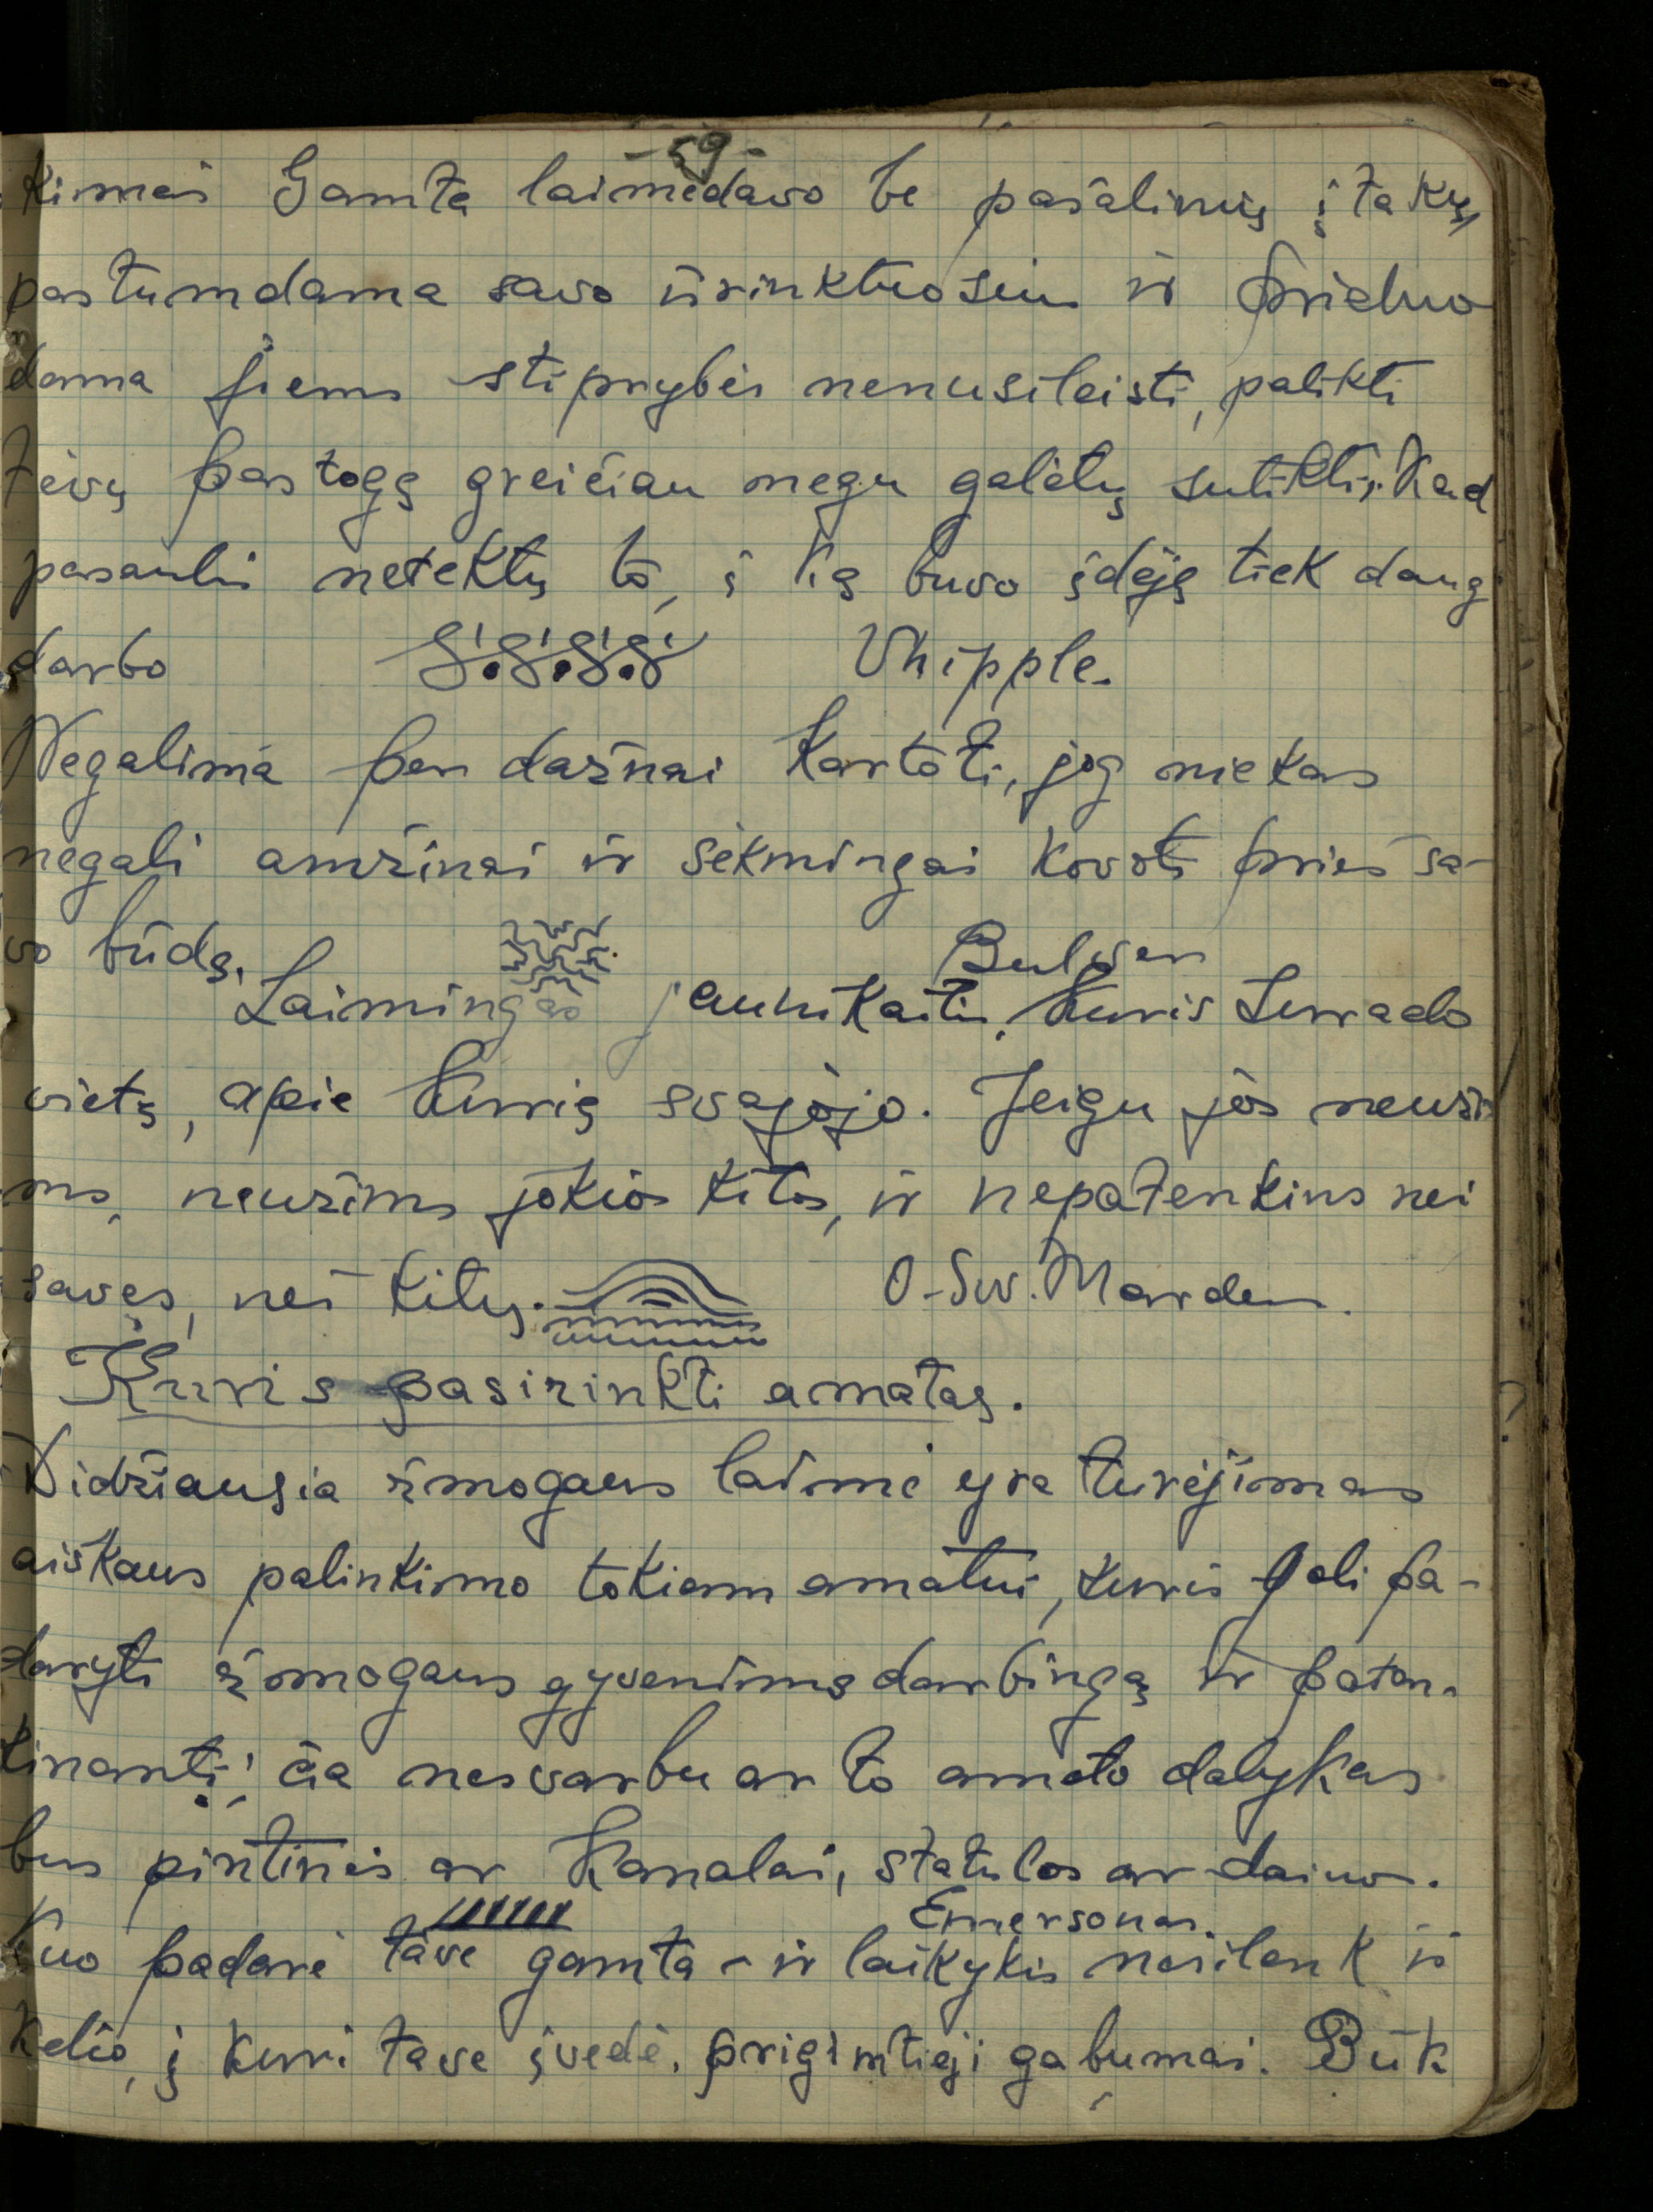 -59-
kimas Gamta laimėdavo be pašalinių įtakų,
pastumdama savo išrinktuosius ir priduo
dama jiems stiprybės nenusileisti, palikti
tėvų pastogę greičiau negu galėtų sutikti, kad
pasaulis netektų to, į ką buvo įdėję tiek daug
darbo Vhipple.
Negalima per dažnai kartoti, jog niekas
negali amžinai ir sėkmingai kovoti prieš sa-
vo būdą. Bulver
Laimingas jaunikaitis, kuris surado
vietą, apie kurią svajojo. Jeigu jos neuži
ms, neužims jokios kitos, ir nepatenkins nei
savęs, nei kitų. O-Sw. Marden.
Kuris pasirinkti amatas.
Didžiausia žmogaus laimė yra turėjimas
aiškaus palinkimo tokiam amatui, kuris gali pa-
daryti žmogaus gyvenimą darbingą ir paten-
kinantį; čia nesvarbu ar to amato dalykas
bus pintinės ar kanalai, statulos ar dainos.
Emersonas.
Kuo padarė tave gamta - ir laikykis nesilenk iš
kelio, į kurį tave įvedė, prigimtieji gabumai. Būk